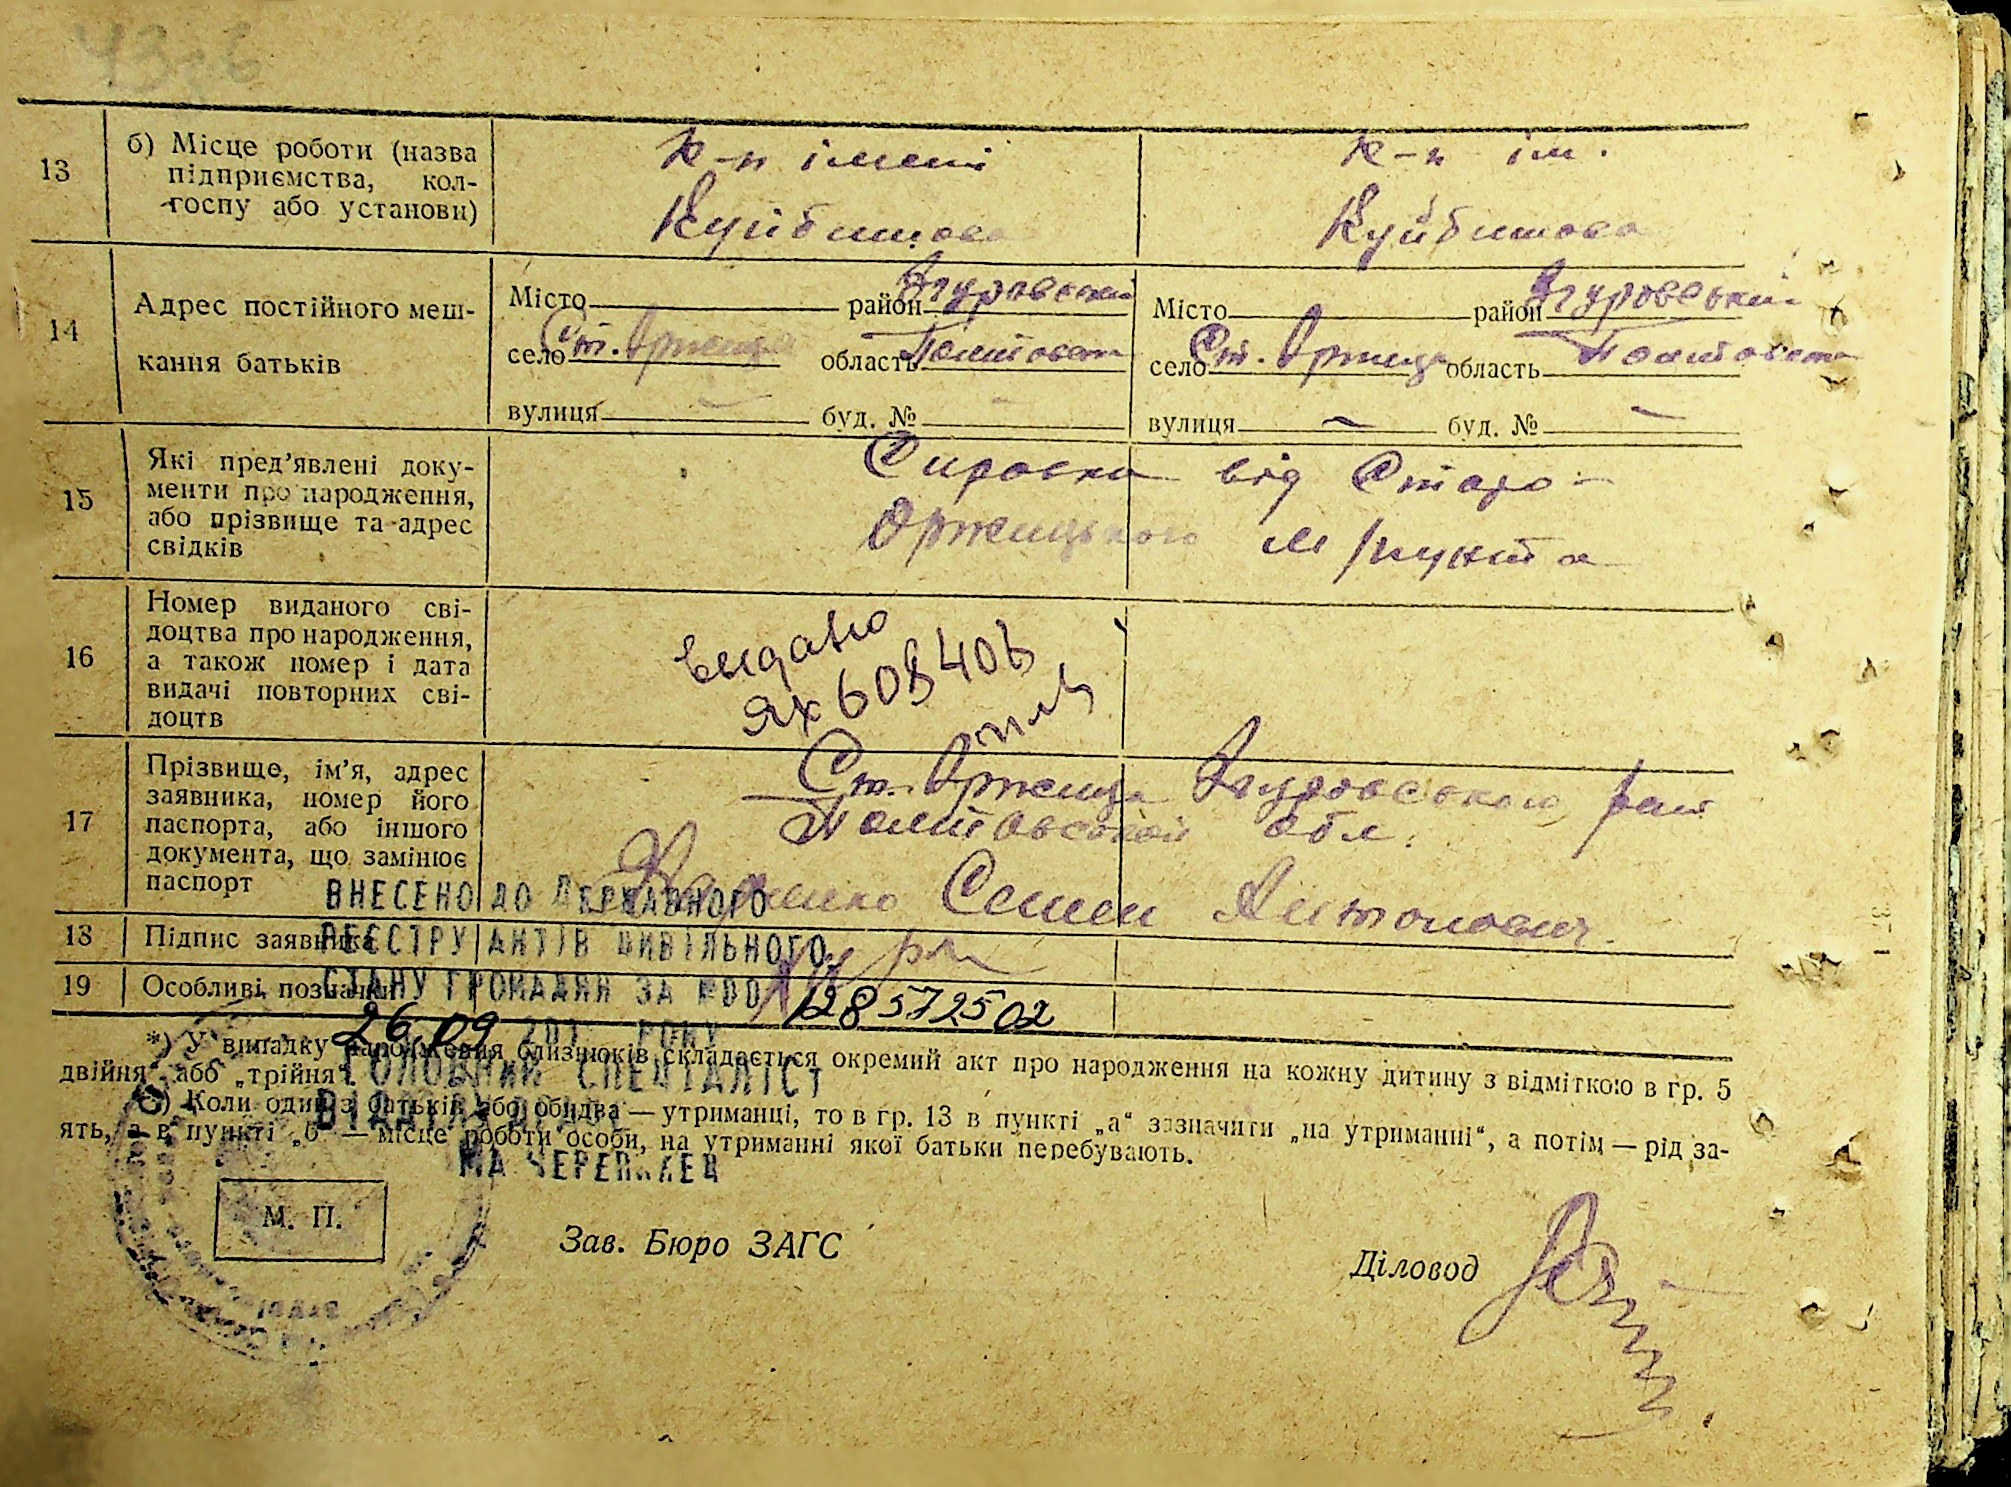 13
б) Місце роботи (назва
підприємства, кол-
госпу або установи)
к-п імені
Куйбишева
к-п ім.
Куйбишева
14
Адрес постійного меш-
кання батьків
Місто район Згуровський
село Ст. Оржиця область Полтавська
вулиця — буд. № —
Місто район Згуровський
село Ст. Оржиця область Полтавська
вулиця — буд. № —
15
Які пред'явлені доку-
менти про народження,
або прізвище та адрес
свідків
Справка від Старо-
Оржицького м/пункта
16
Номер виданого сві-
доцтва про народження,
а також номер і дата
видачі повторних сві-
доцтв
видано
ЯХ 608406
17
Прізвище, ім'я, адрес
заявника, номер його
паспорта, або іншого
документа, що замінює
паспорт
Ст. Оржиця Згуровського рай
Полтавської обл.
Семен Антонович
18
Підпис заявника
19
Особливі позначки
ВНЕСЕНО ДО ДЕРЖАВНОГО
РЕЄСТРУ АКТІВ ЦИВІЛЬНОГО
СТАНУ ГРОМАДЯН ЗА №00 128572502
26.09 201 РОКУ
ГОЛОВНИЙ СПЕЦІАЛІСТ
*) У випадку народження близнюків складається окремий акт про народження на кожну дитину з відміткою в гр. 5
двійня" або „трійня".
Коли один з батьків або обидва — утриманці, то в гр. 13 в пункті „а" зазначити „на утриманні", а потім — рід за-
ять, а в пункті „б" — місце роботи особи, на утриманні якої батьки перебувають.
М. П.
Зав. Бюро ЗАГС
Діловод